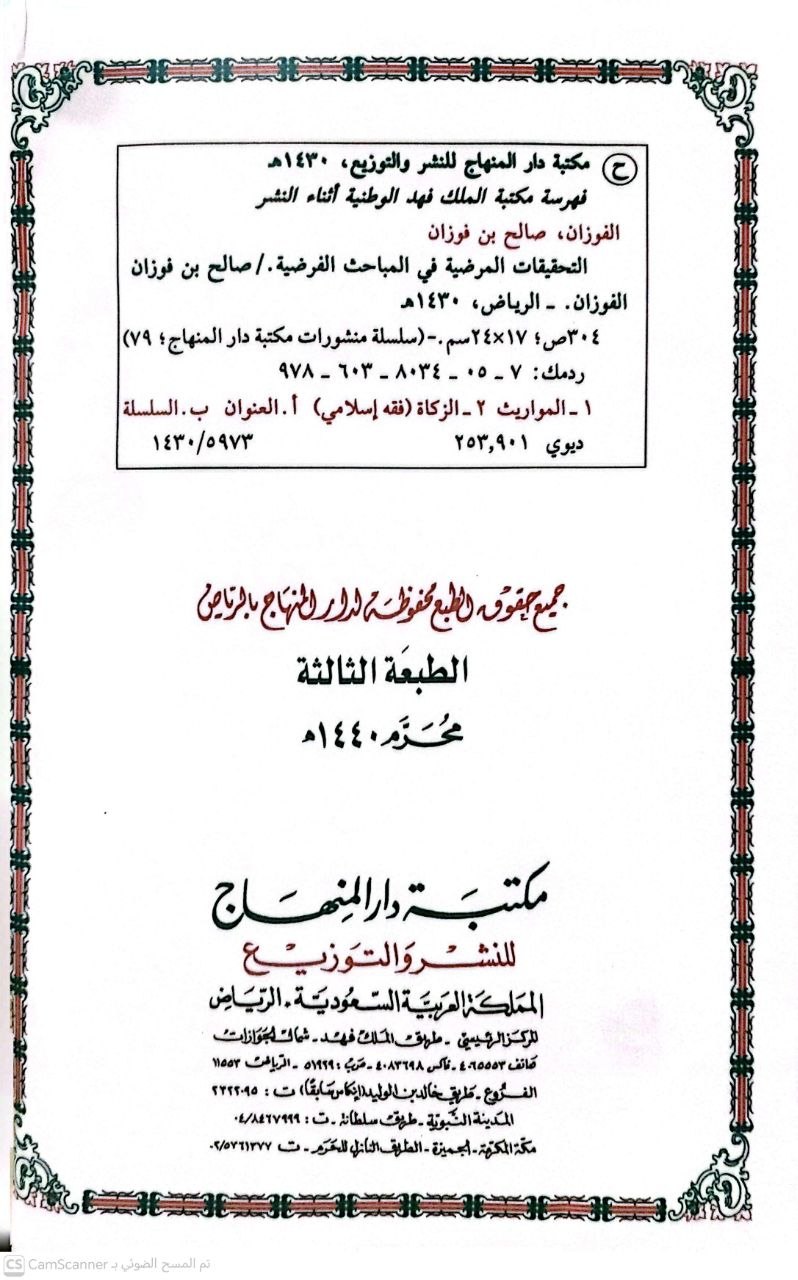 ح مكتبة دار المنهاج للنشر والتوزيع، ١٤٣٠هـ
فهرسة مكتبة الملك فهد الوطنية أثناء النشر
الفوزان، صالح بن فوزان
التحقيقات المرضية في المباحث الفرضية./ صالح بن فوزان
الفوزان. ـ الرياض، ١٤٣٠هـ
٣٠٤ص؛ ١٧×٢٤سم.-(سلسلة منشورات مكتبة دار المنهاج؛ ٧٩)
ردمك: ٧ ـ ٠٥ ـ ٨٠٣٤ ـ ٦٠٣ ـ ٩٧٨
١ ـ المواريث ٢ ـ الزكاة (فقه إسلامي) أ. العنوان ب. السلسلة
ديوي ٢٥٣,٩٠١ ١٤٣٠/٥٩٧٣
جميع حقوق الطبع محفوظة لدار المنهاج بالرياض
الطبعَة الثالثة
محُرَّم ١٤٤٠هـ
مكتبَة دار المنِهَاج
للنشْر وَالتوَزيْع
المملكَة العربيَّة السَّعُوديَّة - الريَاض
المركز الرئيسيّ - طريق الملك فهد - شمال الجوازات
هاتف ٤٠٦٥٥٥٣ - فاكس ٤٠٨٣٦٩٨ - ص.ب: ٥١٩٢٩ - الرياض ١١٥٥٣
الفُروع - طريق خالد بن الوليد (إنكاس سَابقًا) ت : ٢٣٢٢٠٩٥
المدينة النّبويّة - طريق سلطانة - ت : ٠٤/٨٤٦٧٩٩٩
مكّة المكرّمة - الجميزة - الطريق النازل للحَرم - ت ٠٢/٥٧٦١٣٧٧
CS CamScanner تم المسح الضوئي بـ